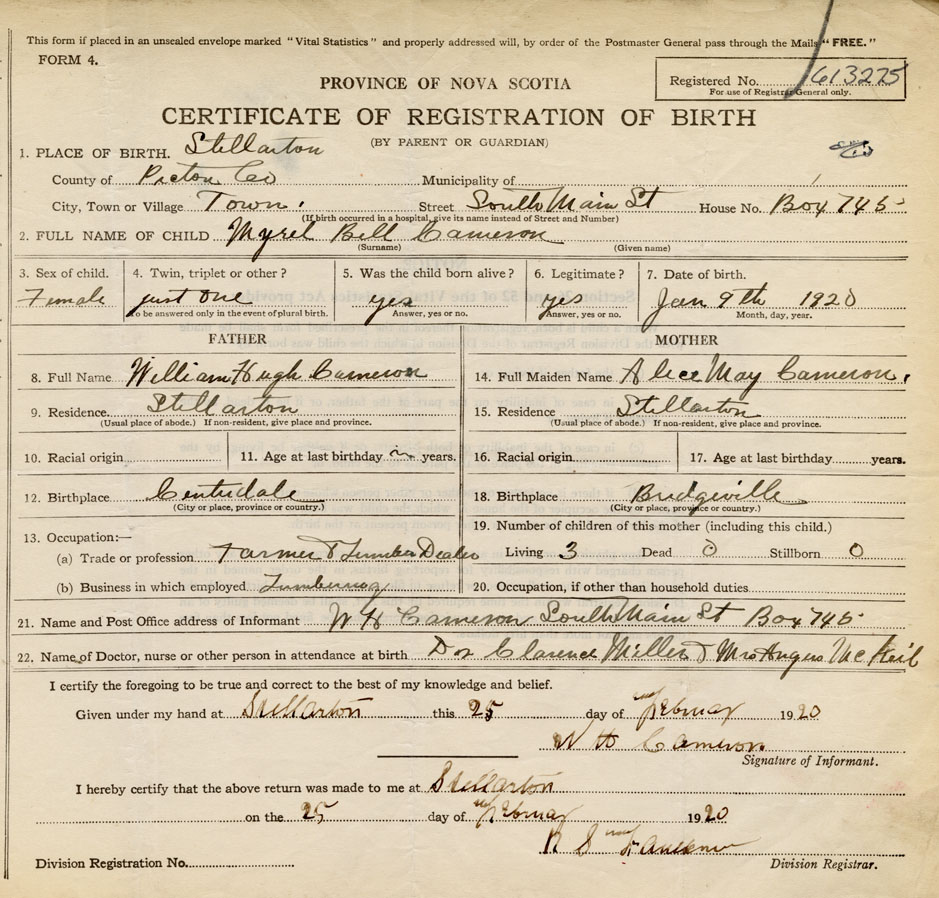 This form if placed in an unsealed envelope marked "Vital Statistics" and properly addressed will, by order of the Postmaster General pass through the Mails "FREE."
FORM 4.
PROVINCE OF NOVA SCOTIA
Registered No. 613275
For use of Registrar General only.
CERTIFICATE OF REGISTRATION OF BIRTH
(BY PARENT OR GUARDIAN)
1. PLACE OF BIRTH. Stellarton
County of Pictou Co Municipality of
City, Town or Village Town. Street South Main St House No. Box 745
(If birth occurred in a hospital, give its name instead of Street and Number)
2. FULL NAME OF CHILD Myrel Bell Cameron
(Surname) (Given name)
3. Sex of child. 4. Twin, triplet or other? 5. Was the child born alive? 6. Legitimate? 7. Date of birth.
Female just one yes yes Jan 9th 1920
To be answered only in the event of plural birth. Answer, yes or no. Answer, yes or no. Month, day, year.
FATHER MOTHER
8. Full Name William Hugh Cameron 14. Full Maiden Name Alice May Cameron.
9. Residence. Stellarton 15. Residence Stellarton
(Usual place of abode.) If non-resident, give place and province. (Usual place of abode.) If non-resident, give place and province.
10. Racial origin 11. Age at last birthday years. 16. Racial origin 17. Age at last birthday years.
12. Birthplace Centredale 18. Birthplace Bridgeville
(City or place, province or country.) (City or place, province or country.)
13. Occupation:— 19. Number of children of this mother (including this child.)
(a) Trade or profession Farmer & Lumber Dealer Living 3 Dead 0 Stillborn 0
(b) Business in which employed Lumbering 20. Occupation, if other than household duties
21. Name and Post Office address of Informant W H Cameron South Main St Box 745
22. Name of Doctor, nurse or other person in attendance at birth Dr Clarence Miller & Mrs Angus McKeil
I certify the foregoing to be true and correct to the best of my knowledge and belief.
Given under my hand at Stellarton this 25 day of February 1920
W H Cameron
Signature of Informant.
I hereby certify that the above return was made to me at Stellarton
on the 25 day of February 1920
R S
Division Registration No. Division Registrar.